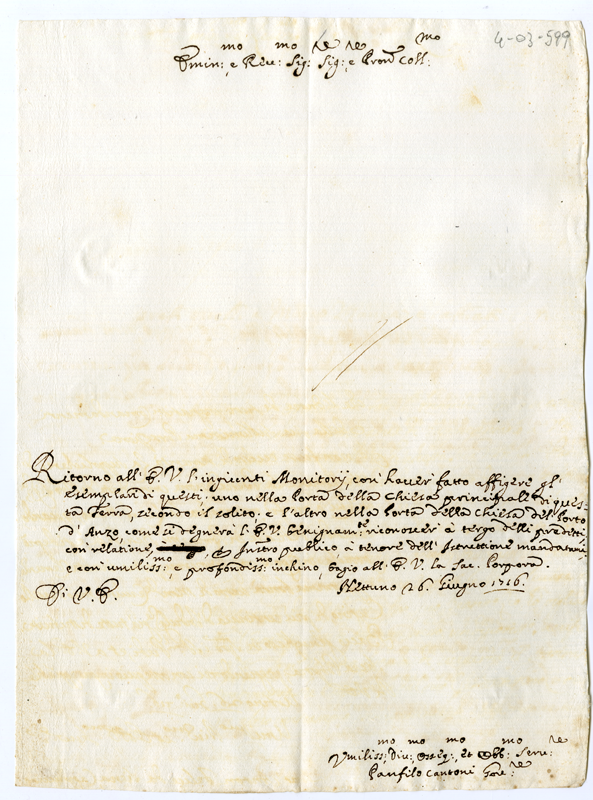 4-03-599
Emin: e Rev: Sig: Sig: e Pron Coll:
mo mo re re mo
Ritorno all' E. V. l'ingiunti Monitorij, con haver fatto affigere gl'
esemplari di questi, uno nella Porta della Chiesa principale di ques-
ta Terra, secondo il solito, e l'altro nella Porta della Chiesa del Porto
d'Anzo, come si degnerà l'E. V. benignam.te riconoscere à tergo delli predetti
con relatione, Instro publico, à tenore dell' Istruttione mandatami,
e con umiliss:mo, e profondiss:mo inchino, bagio all' E. V. la Sac. Porpora.
Di V. E. Nettuno 26. Giugno 1716.
mo mo mo mo re
Umiliss: Div: Osseq: et Obb: Serv:
Panfilo Cantoni Gov:re